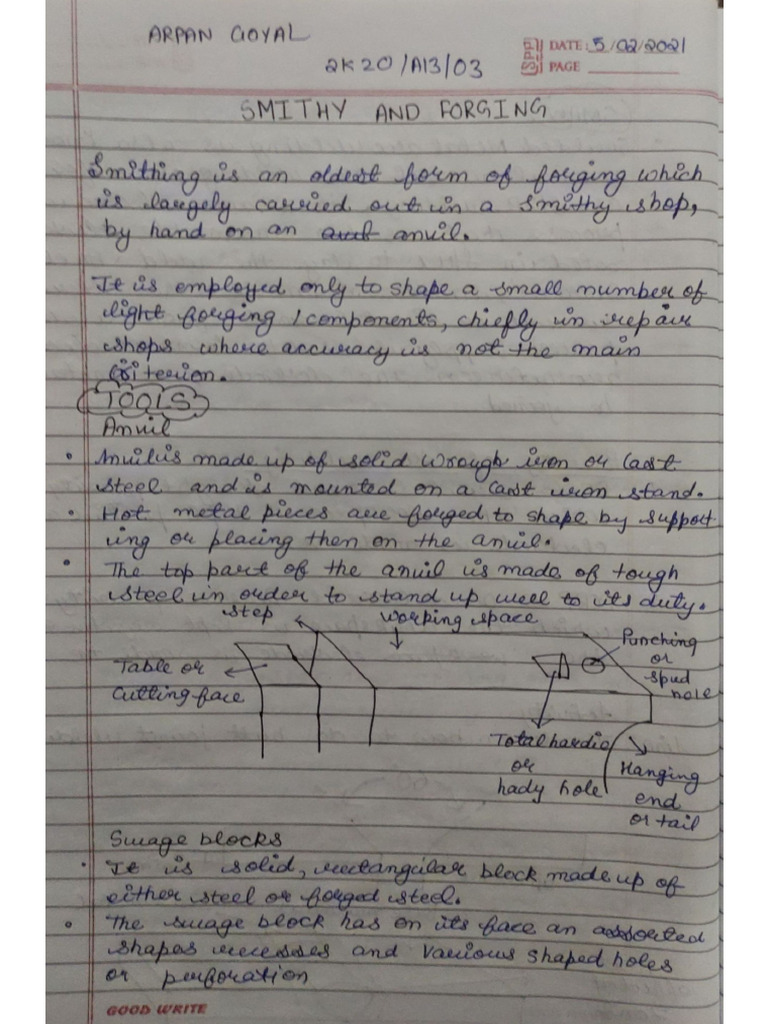 ARPAN GOYAL
DATE: 5/02/2021
2K20/A13/03
PAGE
SMITHY AND FORGING
Smithing is an oldest form of forging which
is largely carried out in a smithy shop,
by hand on an anvil.
It is employed only to shape a small number of
light forging / components, chiefly in repair
shops where accuracy is not the main
criterion.
TOOLS
Anvil
• Anvil is made up of solid wrough iron or cast
steel and is mounted on a cast iron stand.
• Hot metal pieces are forged to shape by support
ing or placing then on the anvil.
• The top part of the anvil is made of tough
steel in order to stand up well to its duty.
step
working space
Punching
or
spud
hole
Table or
Cutting face
Total hardie
or
hady hole
Hanging
end
or tail
Swage blocks
• It is solid, rectangular block made up of
either steel or forged steel.
• The swage block has on its face an assorted
shapes recesses and various shaped holes
or perforation
GOOD WRITE